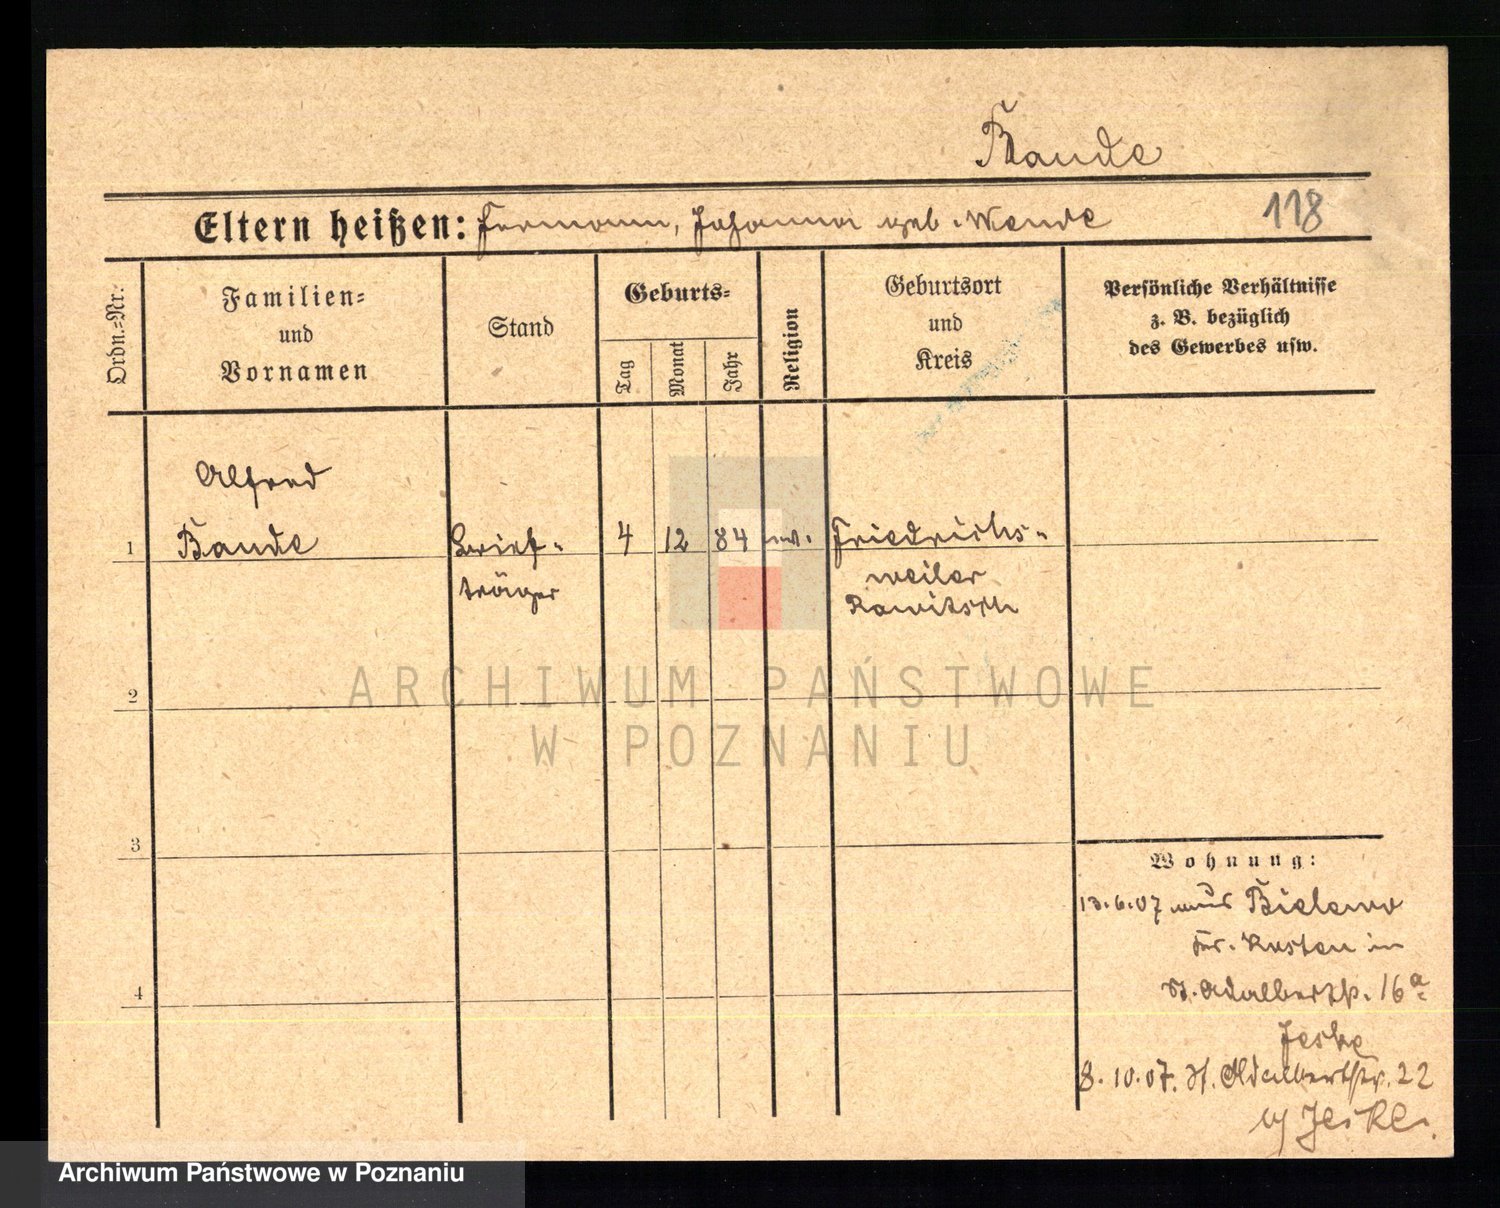 Baude
Eltern heißen: Hermann, Johanna geb. Wende
118
Ordn.=Nr.
Familien=
und
Vornamen
Stand
Geburts=
Tag
Monat
Jahr
Religion
Geburtsort
und
Kreis
Persönliche Verhältnisse
z. B. bezüglich
des Gewerbes usw.
Alfred
1 Baude Brief- 4 12 84 ev. Friedrichs-
träger weiler
Rawitsch
2
3
4
Wohnung:
13.6.07 aus Bielewo
Kr. Kosten in
St. Adalbertstr. 16a
Jeske
8.10.07. St. Adalbertstr. 22
Jeske.
ARCHIWUM PAŃSTWOWE
W POZNANIU
Archiwum Państwowe w Poznaniu